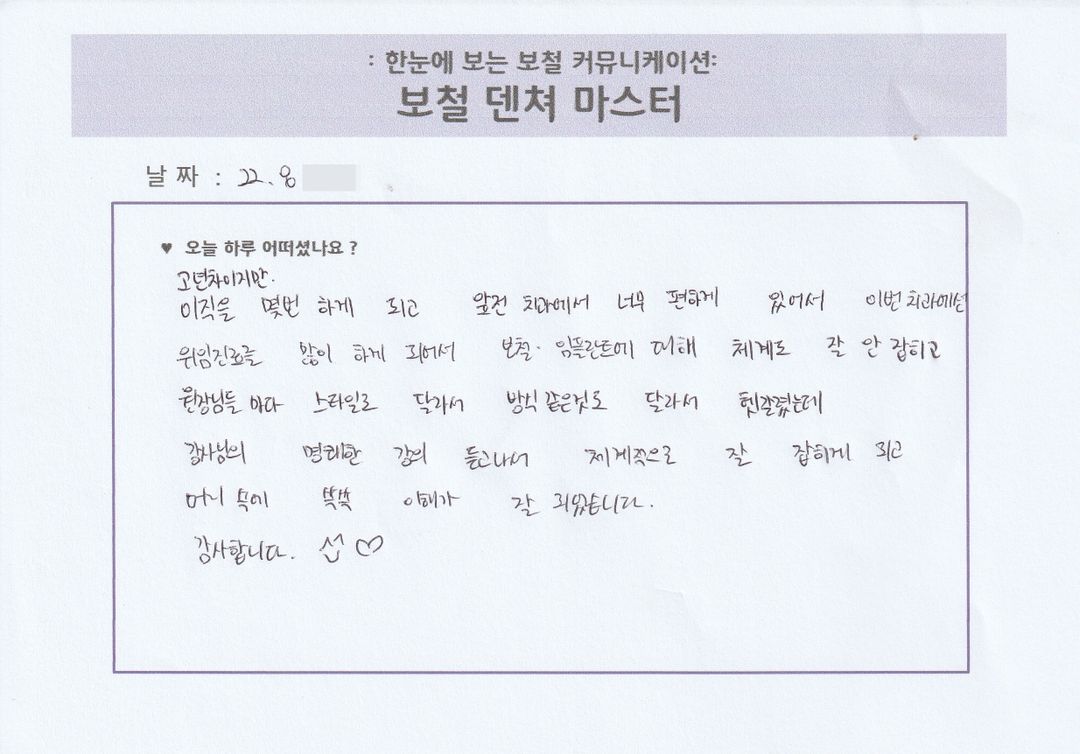 : 한눈에 보는 보철 커뮤니케이션:
보철 덴쳐 마스터
날 짜 : 22. 8
♥ 오늘 하루 어떠셨나요 ?
고년차이지만.
이직을 몇번 하게 되고 앞전 치과에서 너무 편하게 있어서 이번 치과에선
위임진료를 많이 하게 되어서 보철. 임플란트에 대해 체계도 잘 안 잡히고
원장님들 마다 스타일로 달라서 방식 같은것도 달라서 헷갈렸는데
강사님의 명쾌한 강의 듣고나서 체계적으로 잘 잡히게 되고
머리 속에 쏙쏙 이해가 잘 되었습니다.
감사합니다. ♡